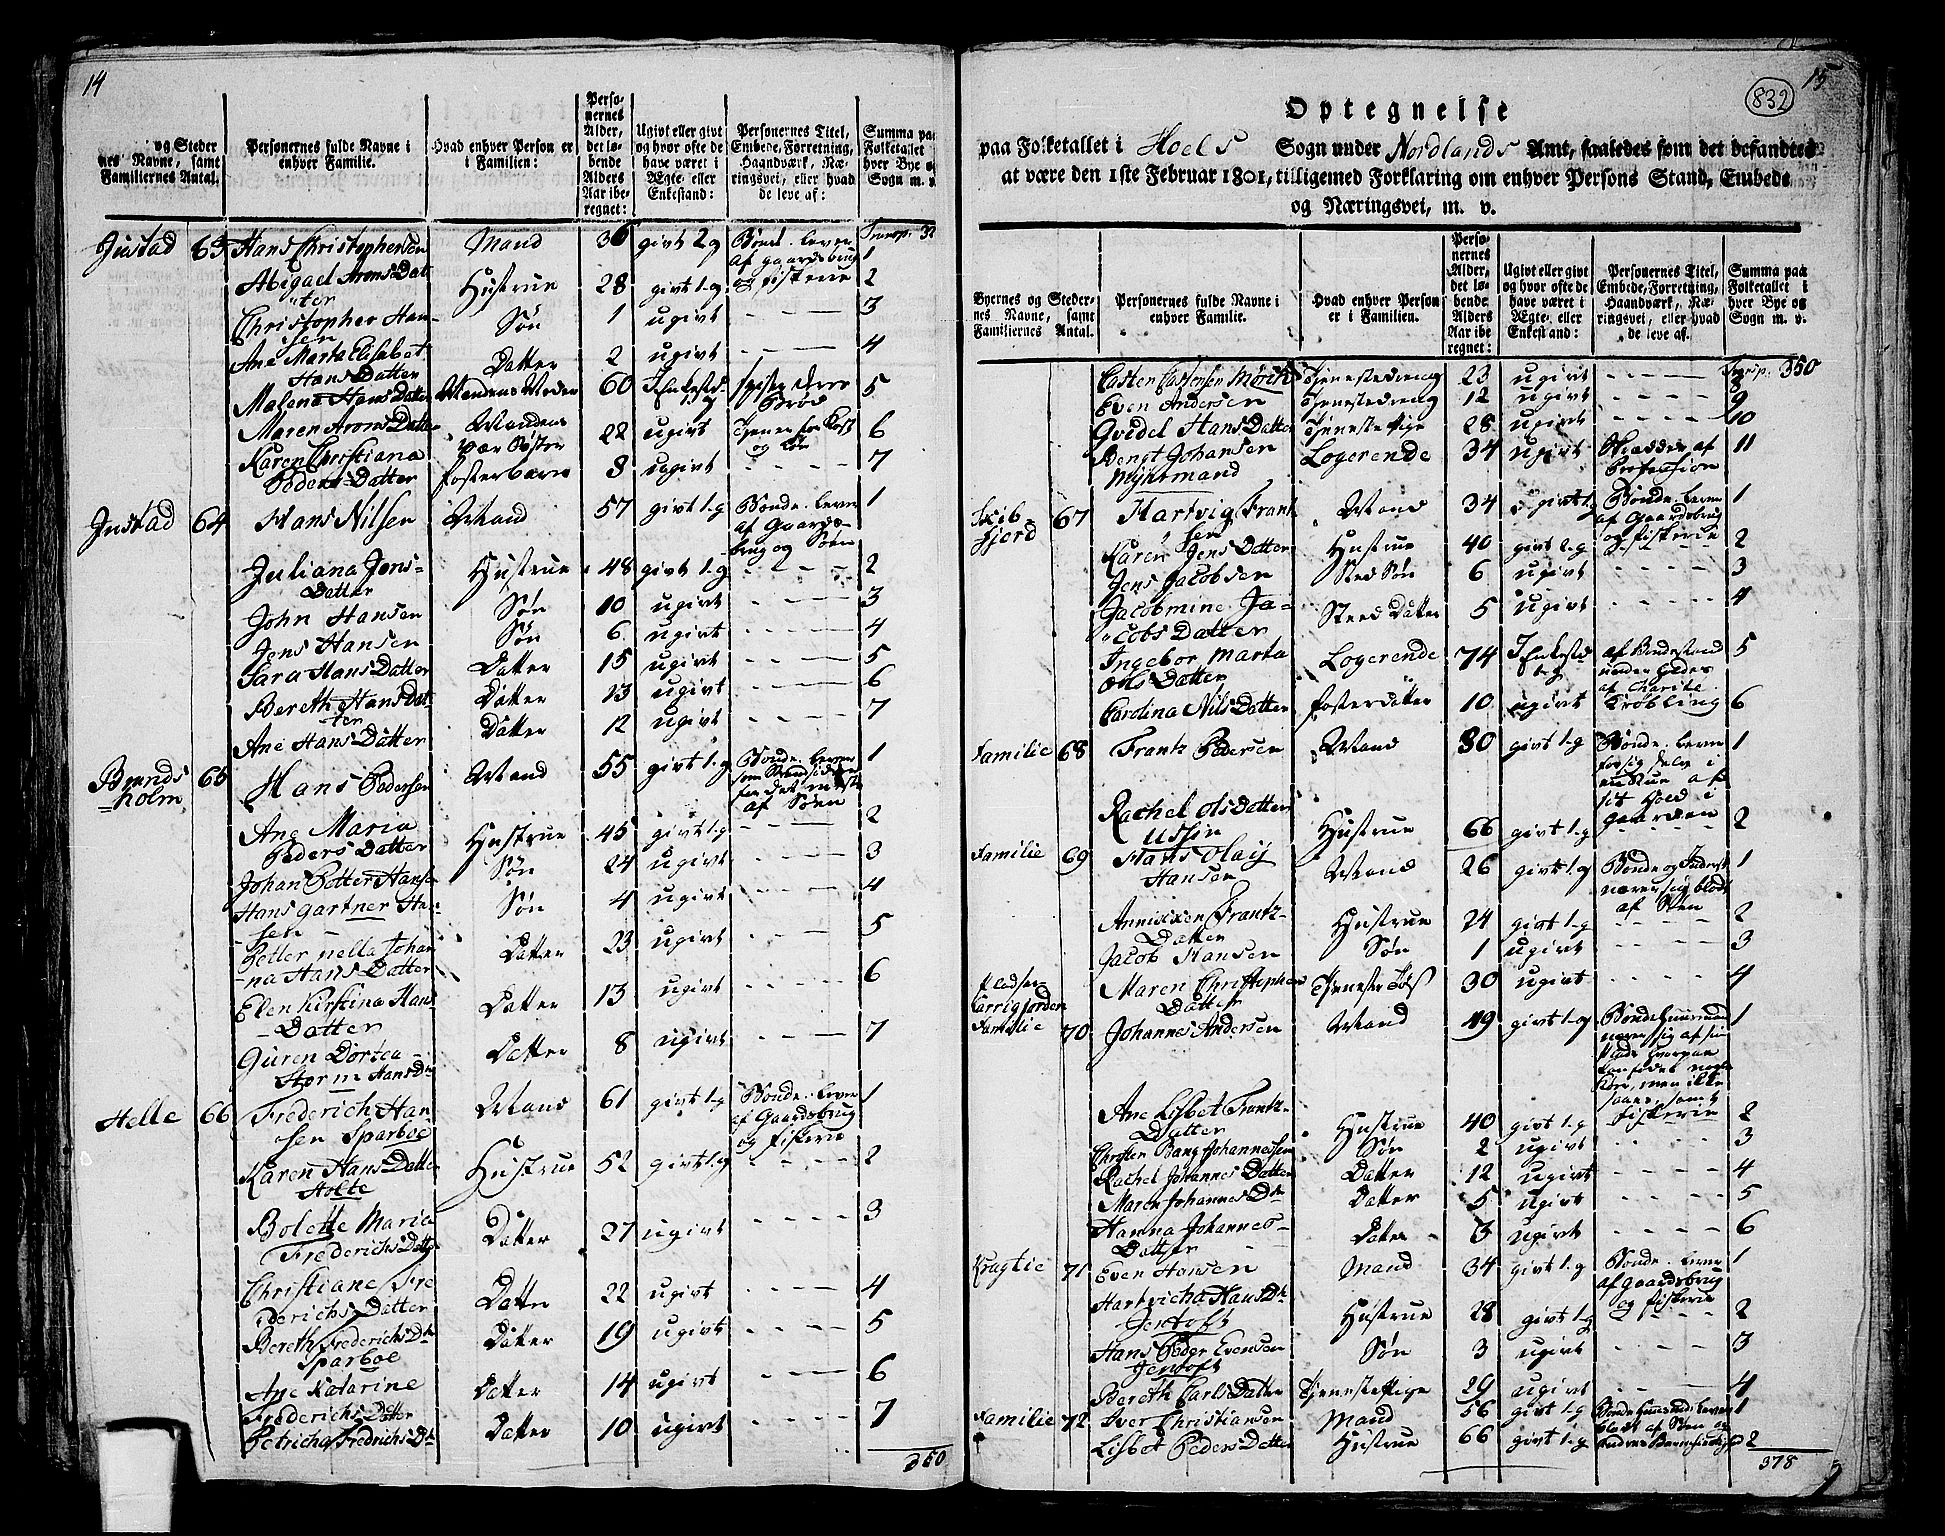 14
og Steder
nes Navne, samt
Familiernes Antal.
Personernes fulde Navne i
enhver Familie.
Hvad enhver Person er
i Familien:
Perso-
nernes
Alder,
det lø-
bende
Alders
Aar ibe-
regnet:
Ugivt eller givt
og hvor ofte de
have været i
Ægte- eller
Enkestand:
Personernes Titel,
Embede, Forretning,
Haandværk, Næ-
ringsvei, eller hvad
de leve af:
Summa paa
Folketallet
hver Bye o
Sogn m. v.
Transp. 3
Justad 63 Hans Christophersen Mand 36 givt 2 g Bonde. lever 1
af gaardsbrug
Abigael Arons Dat- Hustrue 28 givt 1-g og fiskerie 2
ter
Christopher Han- Søn 1 ugivt - - - 3
sen
Ane Marta Elisabet Datter 2 ugivt - - - 4
Hans Datter
Malena Hans Datter Mandens Moder 60 Enkestd. spiser deres 5
Brød
Maren Arons Datter Mandens 22 ugivt Tjener for Kost 6
og Løn
Karen Christiana fosterbarn 8 ugivt - - - 7
Peders Datter
Justad 64 Hans Nilsen Mand 57 givt 1-g Bonde. lever 1
af Gaards-
brug og Søen
Juliana Jons- Hustrue 48 givt 1-g - - - 2
Datter
John Hansen Søn 10 ugivt - - - 3
Jens Hansen Søn 6 ugivt - - - 4
Sara Hans Datter Datter 15 ugivt - - - 5
Bereth Hans Dat- Datter 13 ugivt - - - 6
ter
Ane Hans Datter Datter 12 ugivt - - - 7
Brands 65 Hans Pedersen Mand 55 givt 1-g Bonde. lever 1
-holm
af Søen
Ane Maria Hustrue 45 givt 1-g - - - 2
Peders Datter
Johan Petter Hansen Søn 24 ugivt - - - 3
Hans Gartner Han- Søn 4 ugivt - - - 4
sen
Petter nella Johan Datter 23 ugivt - - - 5
-na Hans Datter
Elen Kirstina Hans Datter 13 ugivt - - - 6
-Datter
Guren Dortea Datter 8 ugivt - - - 7
Storm Hans Dtr
Helle 66 Frederich Han Mand 61 givt 1-g Bonde. lever 1
sen Sparboe af Gaardsbrug
og fiskerie
Karen Hans Datter Hustrue 52 givt 1-g - - - 2
Holte
Bolette Maria Datter 27 ugivt - - - 3
Frederichs Datter
Christiane Fre Datter 22 ugivt - - - 4
derichs Datter
Bereth Frederichs Dtr Datter 19 ugivt - - - 5
Sparboe
Ane Katarine Datter 14 ugivt - - - 6
Frederichs Datter
Petricha Fredrichs Dtr Datter 10 ugivt - - - 7
350
832
15
Optegnelse
paa Folketallet i Hoels Sogn under Nordlands Amt, saaledes som det befandtes
at være den 1ste Februar 1801, tilligemed Forklaring om enhver Persons Stand, Embede
og Næringsvei, m. v.
Byernes og Steder-
nes Navne, samt
Familiernes Antal.
Personernes fulde Navne i
enhver Familie.
Hvad enhver Person
er i Familien.
Perso-
nernes
Alder,
det lø-
bende
Alders
Aar ibe
regnet:
Ugivt eller givt
og hvor ofte de
have været i
Ægte- eller
Enkestand:
Personernes Titel,
Embede, Forretning,
Haandværk, Næ-
ringsvei, eller hvad
de leve af.
Summa paa
Folketallet i
hver Bye og
Sogn m. v.
Transp. 350
Casten Castensen Mørch Tjenestedreng 23 ugivt - - - 8
Even Andersen Tjenestedreng 12 ugivt - - - 9
Gvidel Hans Datter Tjenestepige 28 ugivt - - - 10
Bengt Johansen Logerende 34 ugivt Skredder af 11
Myhrmand Profession
Skib- 67 Hartvig Frant Mand 34 givt 1-g Bonde. lever 1
fjord sen af Gaardsbrug
og fiskerie
Karen Jens Datter Hustrue 40 givt 2-g - - - 2
Jens Jacobsen Sted Søn 6 ugivt - - - 3
Jacobmine Ja- Sted Datter 5 ugivt - - - 4
cobs Datter
Ingebor Marta Logerende 74 Enkestd af Bondestand 5
Ols Datter 1 te g under holdes
af Charite
Carolina Nils Datter fosterdatter 10 ugivt Krøbling 6
Familie 68 Frantz Pedersen Mand 80 givt 1-g Bonde. lever 1
for sig selv i
en Stue af
sit Hold i
gaarden
Rachel Ols Datter Hustrue 66 givt 1-g - - - 2
Ussin
Familie 69 Hans Olaij Mand 26 givt 1-g Bonde og Inderst 1
Hansen nærer sig blodt
af Søen
Anniken Frantz- Hustrue 24 givt 1-g - - - 2
Datter
Jacob Hansen Søn 1 ugivt - - - 3
Maren Christophers Tjeneste Tøs 30 ugivt - - - 4
Datter
Pladsen
Karrigjorden
Familie 70 Johannes Andersen Mand 49 givt 1-g Bonde huusmand 1
nærer sig af sin
Plads hvorpaa
kan fødes nogle
Køer, men ikke
saaes, samt
fiskerie
Ane Lisbet Frantz- Hustrue 40 givt 1-g 2
Datter
Christen Bang Johannessen Søn 2 ugivt - - - 3
Rachel Johannes Datter Datter 12 ugivt - - - 4
Maren Johannes Dtr Datter 5 ugivt - - - 5
Hanna Johannes- Datter 3 ugivt - - - 6
Datter
Kragtie 71 Even Hansen Mand 34 givt 1-g Bonde. lever 1
af Gaardsbrug
og fiskerie
Hartvicha Hans Dtr Hustrue 28 givt 1-g - - - 2
Jentoft
Hans Peder Evensen Søn 3 ugivt - - - 3
Jentoft
Bereth Carls Datter Tjenestepige 29 ugivt - - - 4
Familie 72 Iver Christiansen Mand 56 givt 1-g Bonde huusmd. lever 1
blodt af Søen og
Lisbet Peders Datter Hustrue 66 givt 1-g 2
378